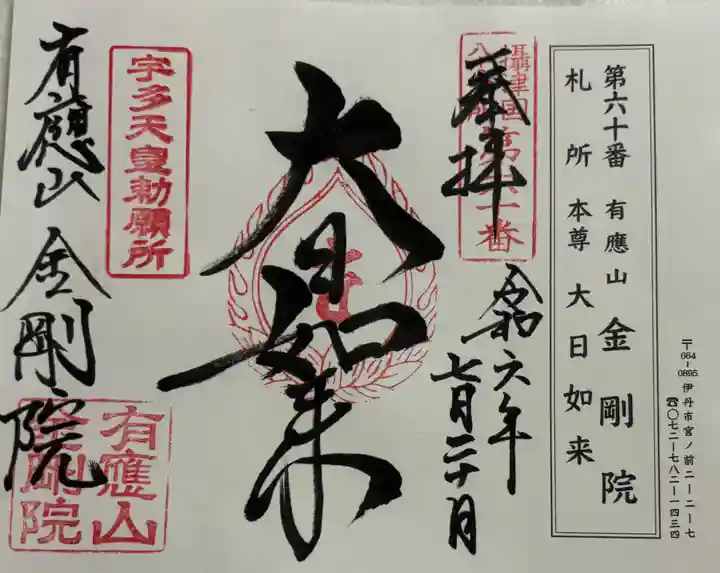 〒664-0895 伊丹市宮ノ前二ー二ー七
☎〇七二ー七八二ー一四三四
第六十番 有應山 金剛院
札所本尊 大日如来
攝津国
奉拝
令和六年
七月二十日
大日如来
宇多天皇勅願所
有應山 金剛院
有應山
金剛院